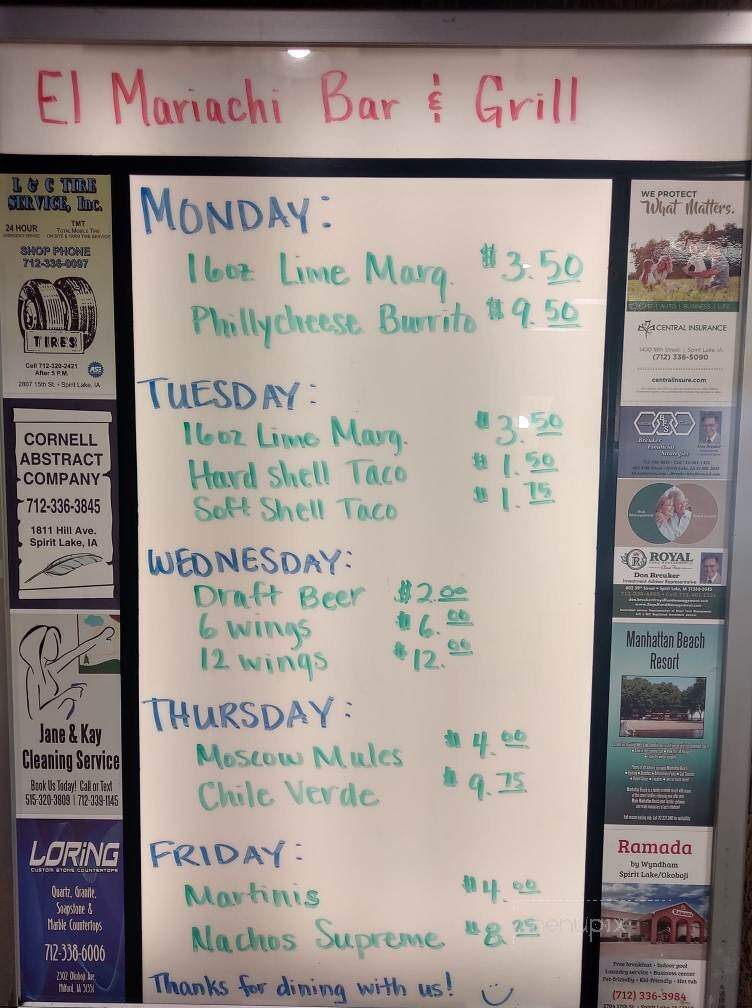 El Mariachi Bar & Grill
L & C TIRE
SERVICE, Inc.
24 HOUR
EMERGENCY SERVICE
TMT
TOTAL MOBILE TIRE
ON SITE & FARM TIRE SERVICE
SHOP PHONE
712-336-0097
TIRES
Cell 712-320-2421
After 5 P.M.
2807 15th St. • Spirit Lake, IA
CORNELL
ABSTRACT
COMPANY
712-336-3845
1811 Hill Ave.
Spirit Lake, IA
Jane & Kay
Cleaning Service
Book Us Today! Call or Text
515-320-3809 | 712-339-1145
LORING
CUSTOM STONE COUNTERTOPS
Quartz, Granite,
Soapstone &
Marble Countertops
712-338-6006
2302 Okoboji Ave.
Milford, IA 51351
MONDAY:
16oz Lime Marg. $3.50
Phillycheese Burrito $9.50
TUESDAY:
16oz Lime Marg. $3.50
Hard Shell Taco $1.50
Soft Shell Taco $1.75
WEDNESDAY:
Draft Beer $2.00
6 wings $6.00
12 wings $12.00
THURSDAY:
Moscow Mules $4.00
Chile Verde $9.75
FRIDAY:
Martinis $4.00
Nachos Supreme $8.25
Thanks for dining with us!
menupix
WE PROTECT
What Matters.
AUTO | BUSINESS | LIFE
CENTRAL INSURANCE
1400 18th Street | Spirit Lake, IA
(712) 336-5090
centralinsure.com
Breuker
Financial
Strategies
ROYAL
Don Breuker
Investment Advisor Representative
Manhattan Beach
Resort
Ramada
by Wyndham
Spirit Lake/Okoboji
Free breakfast • Indoor pool
Laundry service • Business center
Pet-friendly • Kid-friendly • Hot tub
(712) 336-3984